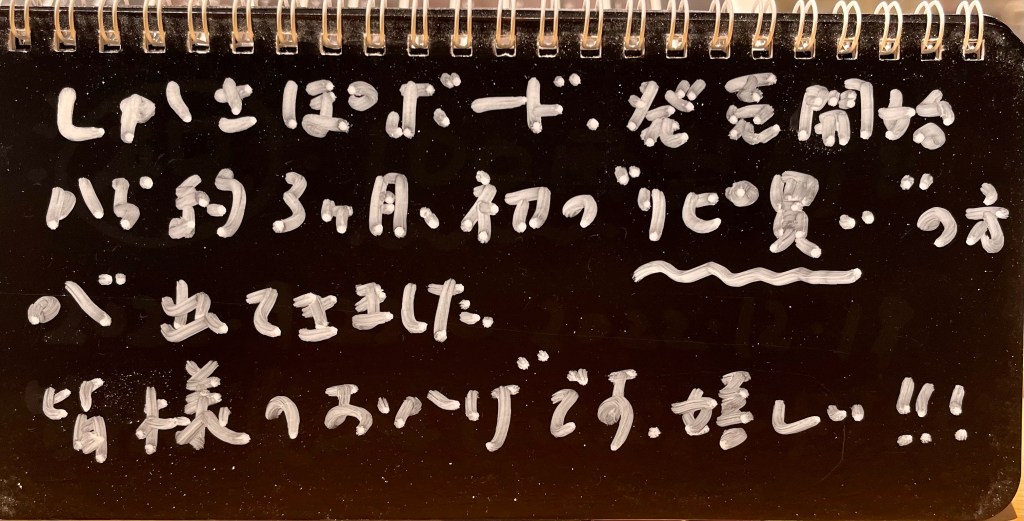 しかさぽボード、発売開始
から約3ヶ月、初の"リピ買い"の方
が出てきました。
皆様のおかげです。嬉しい!!!